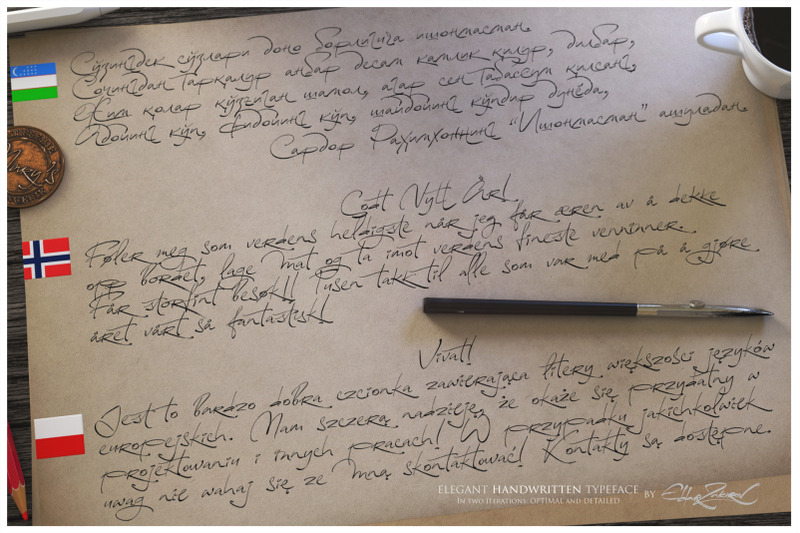 Сўзингдек сўзлари доно борлигига ишонмасман.
Сочингдан тарқалур анбар десам камлик қилур, дилбар,
Жим қолар қўзғиган шамол, агар сен табассум қилсанг,
Адойинг кўп, Фидойинг кўп, шайдойинг кўпдир дунёда,
Сардор Раҳимхоннинг “Ишонмасман” ашуладан.
Godt Nytt År!
Føler meg som verdens heldigste når jeg får æren av å dekke
opp bordet, lage mat og ta imot verdens fineste venninner.
Får storfint besøk!! Tusen takk til alle som var med på å gjøre
året vårt så fantastisk!
Vivat!
Jest to bardzo dobra czcionka zawierająca litery większości języków
europejskich. Mam szczerą nadzieję, że okaże się przydatny w
projektowaniu i innych pracach! W przypadku jakichkolwiek
uwag nie wahaj się ze mną skontaktować! Kontakty są dostępne.
ELEGANT HANDWRITTEN TYPEFACE BY
IN TWO ITERATIONS: OPTIMAL AND DETAILED